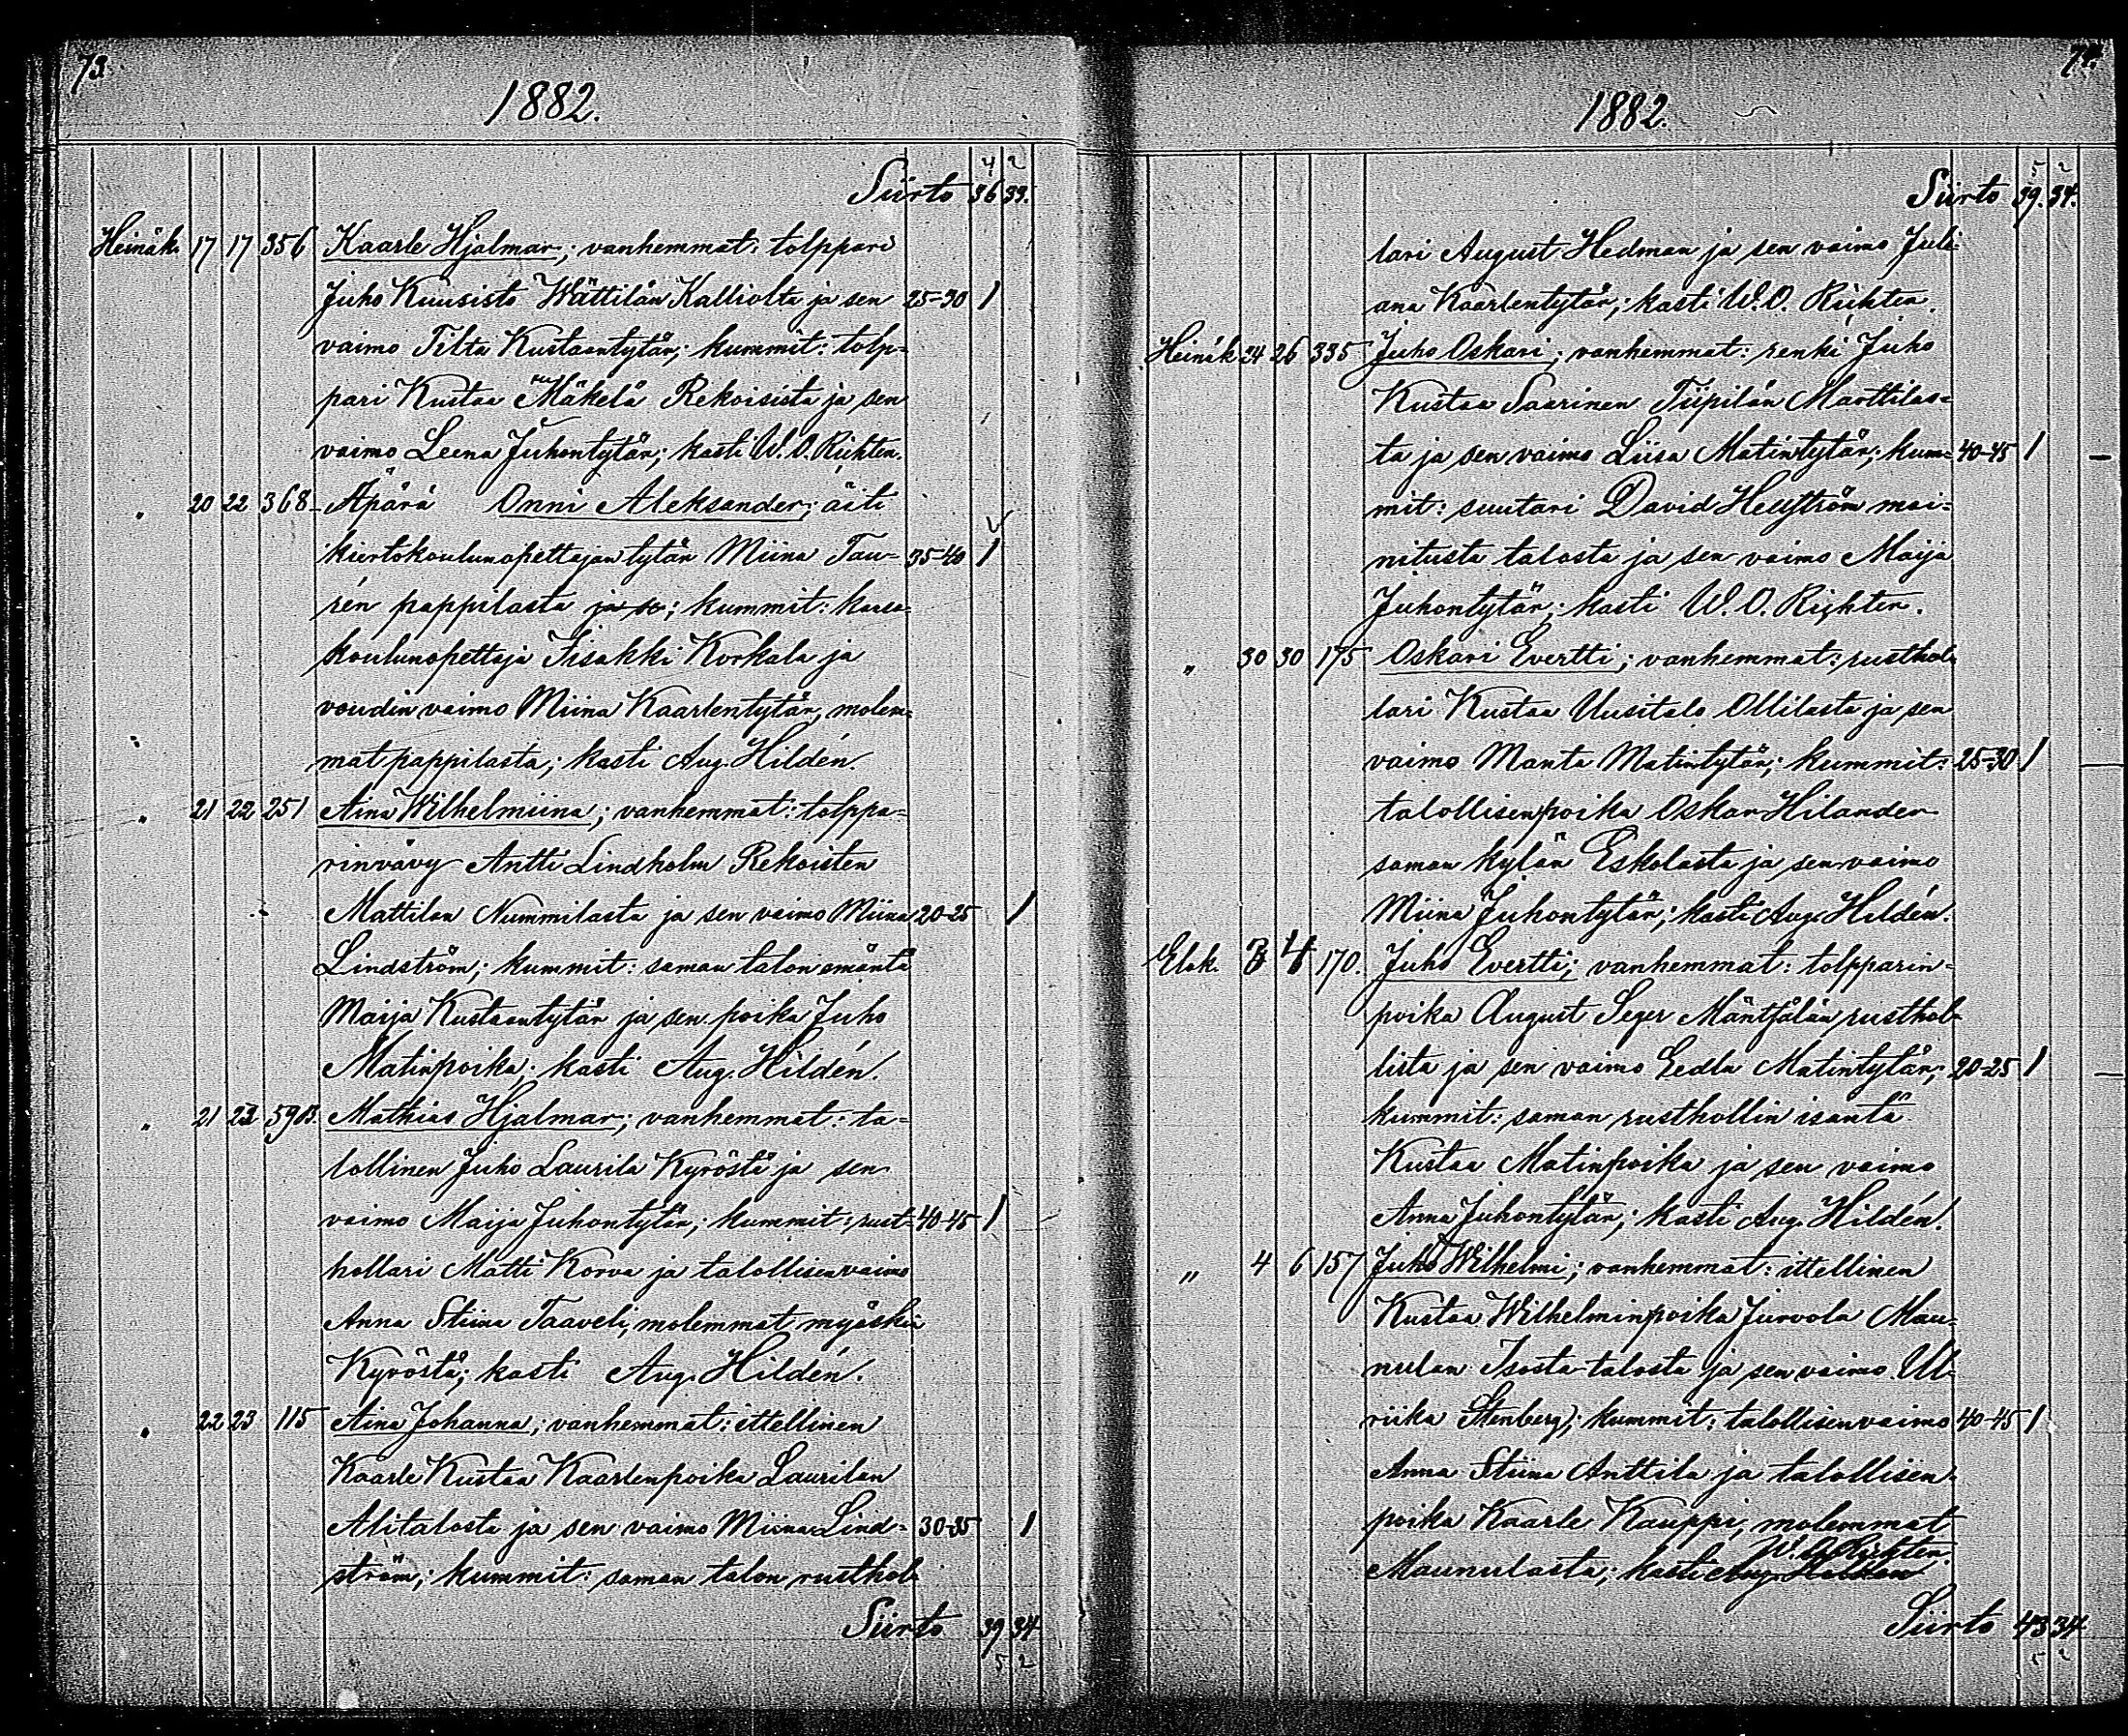 73.
1882.
4 2
Siirto 36 33.
Heinäk. 17 17 356 Kaarle Hjalmar; vanhemmat: tolppari
Juho Kuusisto Wättilän Kalliolta ja sen 25-30 1
vaimo Tilta Kustaantytär; kummit: tolp=
pari Kustaa Mäkelä Rekoisista ja sen
vaimo Leena Juhontytär; kasti W. O. Richter.
" 20 22 368 Äpärä Onni Aleksander; äiti
kiertokoulunopettajan tytär Miina Tau- 35-40 1
rén pappilasta ; kummit: kansa-
koulunopettaja Iisakki Korkala ja
voudin vaimo Miina Kaarlentytär, molem=
mat pappilasta; kasti Aug. Hildén.
" 21 22 251 Aina Wilhelmiina; vanhemmat: tolppa=
rinvävy Antti Lindholm Rekoisten
Mattilan Nummilasta ja sen vaimo Miina 20-25 1
Lindström; kummit: saman talon emäntä
Maija Kustaantytär ja sen poika Juho
Matinpoika; kasti Aug. Hildén.
" 21 23 590B. Mathias Hjalmar; vanhemmat: ta=
lollinen Juho Laurila Kyröstä ja sen
vaimo Maija Juhontytär; kummit: rust- 40-45 1
hollari Matti Korva ja talollisenvaimo
Anna Stiina Taaveli, molemmat myöskin
Kyröstä; kasti Aug. Hildén.
" 22 23 115 Aina Johanna; vanhemmat: ittellinen
Kaarle Kustaa Kaarlenpoika Laurilan
Alitalosta ja sen vaimo Miina Lind- 30-35 1
ström; kummit: saman talon rusthol-
Siirto 39 34
5 2
74.
1882.
5 2
Siirto 39. 34.
lari August Hedman ja sen vaimo Juli-
ana Kaarlentytär; kasti W. O. Richter.
Heinäk 24 26 335 Juho Oskari; vanhemmat: renki Juho
Kustaa Saarinen Tiipilän Marttilas=
ta ja sen vaimo Liisa Matintytär; kum= 40-45 1
mit: suutari David Hellström mai=
nitusta talosta ja sen vaimo Maija
Juhontytär; kasti W. O. Richter.
" 30 30 175 Oskari Evertti; vanhemmat: rusthol-
lari Kustaa Uusitalo Ollilasta ja sen
vaimo Manta Matintytär; kummit: 25-30 1
talollisenpoika Oskar Hilander
saman kylän Eskolasta ja sen vaimo
Miina Juhontytär; kasti Aug. Hildén.
Elok. 3 4 170. Juho Evertti; vanhemmat: tolpparin-
poika August Seger Mäntjälän rusthol-
lista ja sen vaimo Eedla Matintytär; 20-25 1
kummit: saman rusthollin isäntä
Kustaa Matinpoika ja sen vaimo
Anna Juhontytär; kasti Aug. Hildén.
" 4 6 157 Juho Wilhelmi; vanhemmat: ittellinen
Kustaa Wilhelminpoika Jurvola Mau-
nulan Isosta-talosta ja sen vaimo Ul-
riika Stenberg; kummit: talollisenvaimo 40-45 1
Anna Stiina Anttila ja talollisen-
poika Kaarle Kauppi, molemmat
W. O. Richter.
Maunulasta; kasti Aug. Hildén
Siirto 43 34
5 2